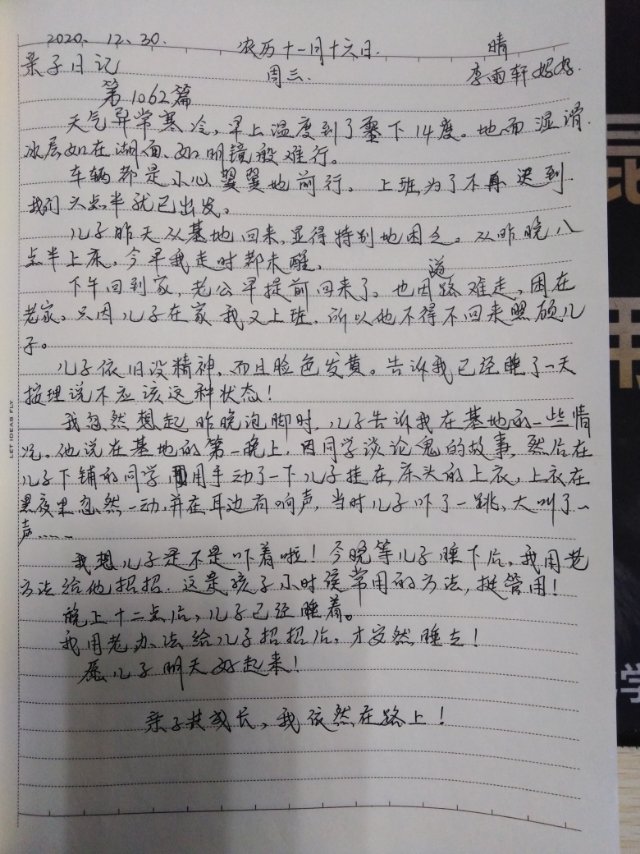 2020. 12. 30. 农历十一月十六日. 晴
亲子日记 周三. 李雨轩妈妈.
第1062篇
天气异常寒冷，早上温度到了零下14度。地面湿滑.
冰层如在湖面、如明镜般难行。
车辆都是小心翼翼地前行。上班为了不再迟到.
我们六点半就已出发。
儿子昨天从基地回来，显得特别地困乏。从昨晚八
点半上床，今早我走时都未醒.
下午回到家，老公早提前回来了。也因道路难走，困在
老家。只因儿子在家我又上班，所以他不得不回来照顾儿
子。
儿子依旧没精神，而且脸色发黄。告诉我已经睡了一天
按理说不应该这种状态！
我忽然想起昨晚泡脚时，儿子告诉我在基地的一些情
况。他说在基地的第一晚上，因同学谈论鬼的故事，然后在
儿子下铺的同学用手动了一下儿子挂在床头的上衣，上衣在
黑夜里忽然一动，并在耳边有响声，当时儿子吓了一跳，大叫了一
声……
我想儿子是不是吓着啦！今晚等儿子睡下后，我用老
方法给他招招.这是孩子小时候常用的方法，挺管用！
晚上十二点后，儿子已经睡着。
我用老办法给儿子招招后，才安然睡去！
愿儿子明天好起来！
亲子共成长，我依然在路上！
LET IDEAS FLY